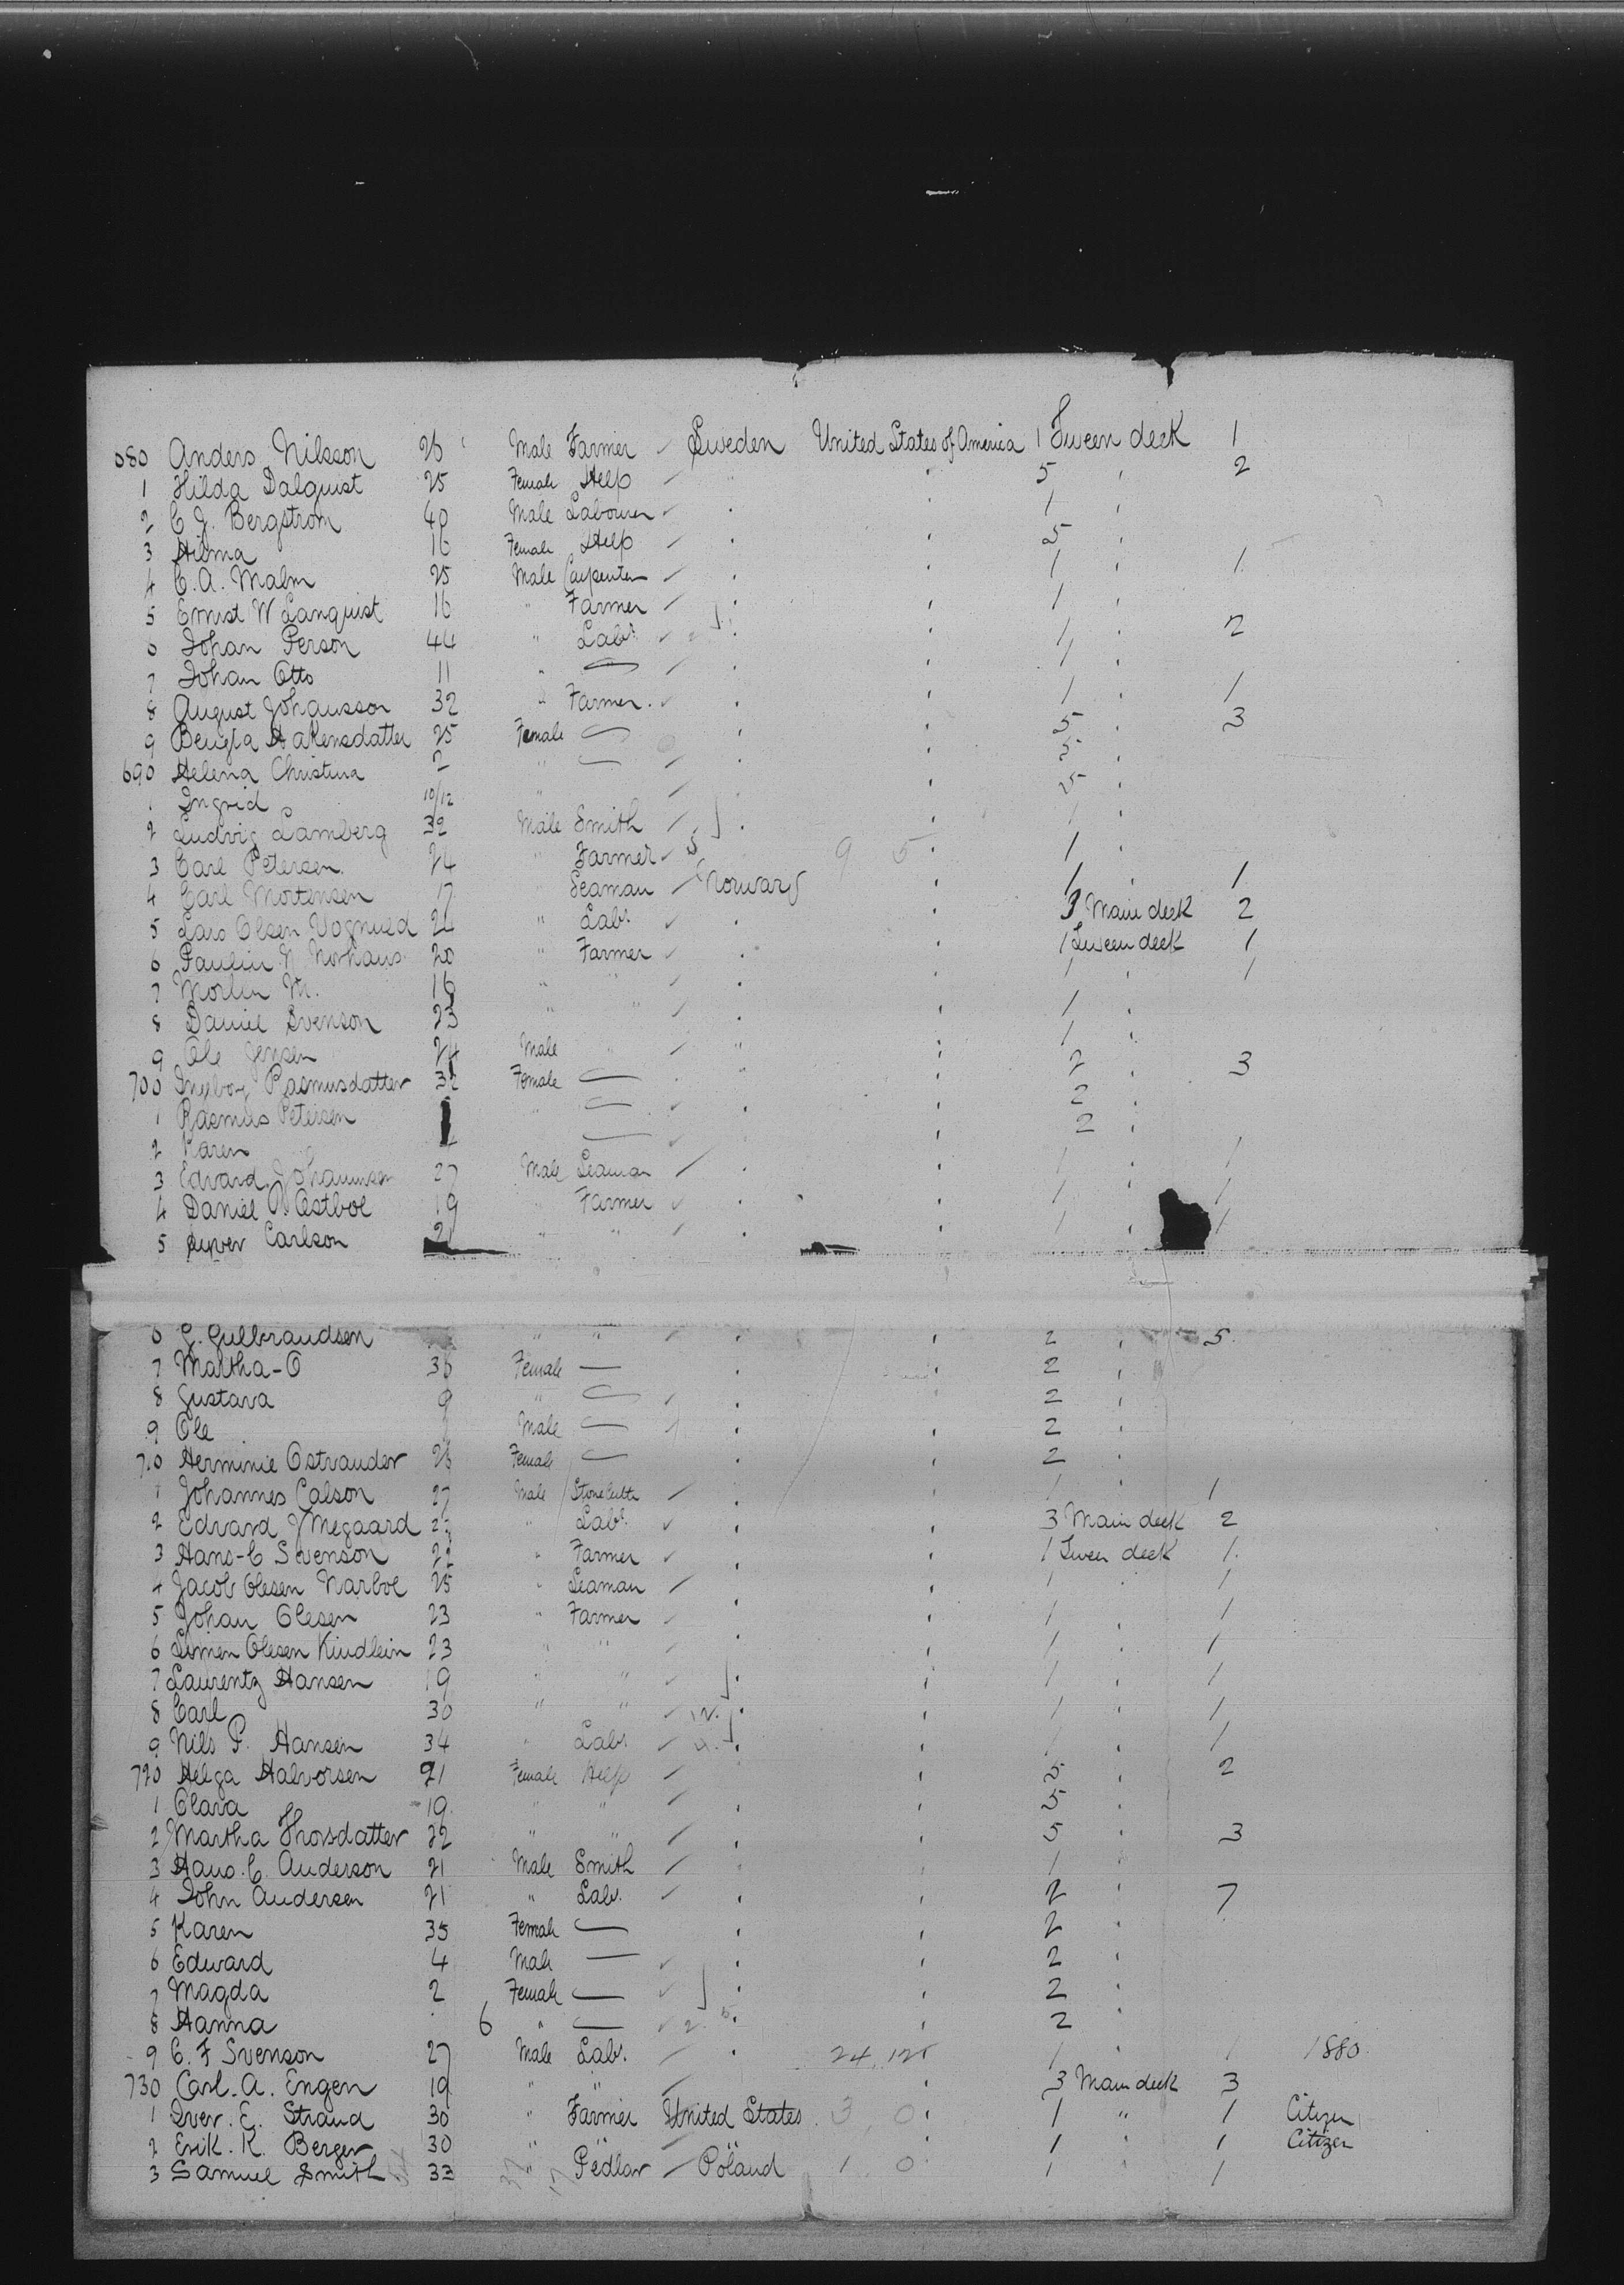 680 Anders Nilsson 26 Male Farmer Sweden United States of America 1 Tween deck 1
1 Hilda Dalquist 25 Female Help " " 5 " 2
2 C. J. Bergstrom 40 Male Labourer " " 1 "
3 Hilma 16 Female Help " " 5 "
4 C. A. Malm 25 Male Carpenter " " 1 " 1
5 Ernst W Lanquist 16 " Farmer " " 1 "
6 Johan Person 44 " Labr " " 1 " 2
7 Johan Otto 11 " — " " 1 "
8 August Johansson 32 " Farmer " " 1 " 1
9 Hakensdatter 25 Female — " " 5 " 3
690 Helena Christina 2 " — " " 5 "
1 Ingrid 10/12 " " " 5 "
2 Ludvig Lamberg 32 Male Smith " " 1 "
3 Carl Petersen 24 " Farmer 9 5 " 1
4 Carl Mortensen 17 " Seaman Norway " 1 " 1
5 Lars Olsen 24 " Labr " " 3 Main deck 2
6 Paulin N 20 " Farmer " " 1 Tween deck 1
7 M. 16 " " " " 1 " 1
8 Daniel Svenson 23 " " " " 1 "
9 Ole Jensen 24 Male " " " 1 "
700 Ingeborg Rasmusdatter 32 Female — " " 2 " 3
1 Rasmus Petersen " — " " 2 "
2 Karen — " " 2 "
3 Edvard Johannsen 27 Male Seaman " " 1 " 1
4 Daniel Ostboe 19 " Farmer " " 1 " 1
5 Carlson 21 " " " " 1 " 1
6 G. Gulbrandsen " " " " 2 " 5
7 Martha-O 36 Female — " " 2 "
8 Gustava 9 " — " " 2 "
9 Ole Male — " " 2 "
710 Herminie Ostrander 26 Female — " " 2 "
1 Johannes Calson 27 Male Stonecutter " " 1 " 1
2 Edvard J Megaard " Labr " " 3 Main deck 2
3 Hans-C Svenson 22 " Farmer " " 1 Tween deck 1
4 Jacob Olesen Narboe 25 " Seaman " " 1 " 1
5 Johan Olesen 23 " Farmer " " 1 " 1
6 Simen Olesen Kindlein 23 " " " " 1 " 1
7 Laurentz Hansen 19 " " " " 1 " 1
8 Carl 30 " " " " 1 " 1
9 Nils P. Hansen 34 " Labr " " 1 " 1
720 Helga Halvorsen 21 Female Help " " 5 " 2
1 Clara 19 " " " " 5 "
2 Martha Thorsdatter 22 " " " " 5 " 3
3 Hans. C. Anderson 21 Male Smith " " 1 "
4 John Andersen 21 " Labr. " " 2 " 7
5 Karen 35 Female — " " 2 "
6 Edward 4 Male — " " 2 "
7 Magda 2 Female — " " 2 "
8 Hanna 6 " — " " 2 "
9 C. F Svenson 27 Male Labr. " 24 12 1 " 1 1880
730 Carl. A. Engen 19 " " " 3 Main deck 3
1 Iver. E. Strand 30 " Farmer United States 3 0 " 1 " 1 Citizen
2 Erik. K. Berger 30 " " " " 1 " 1 Citizen
3 Samuel Smith 33 " Pedlar Poland 1 0 1 " 1